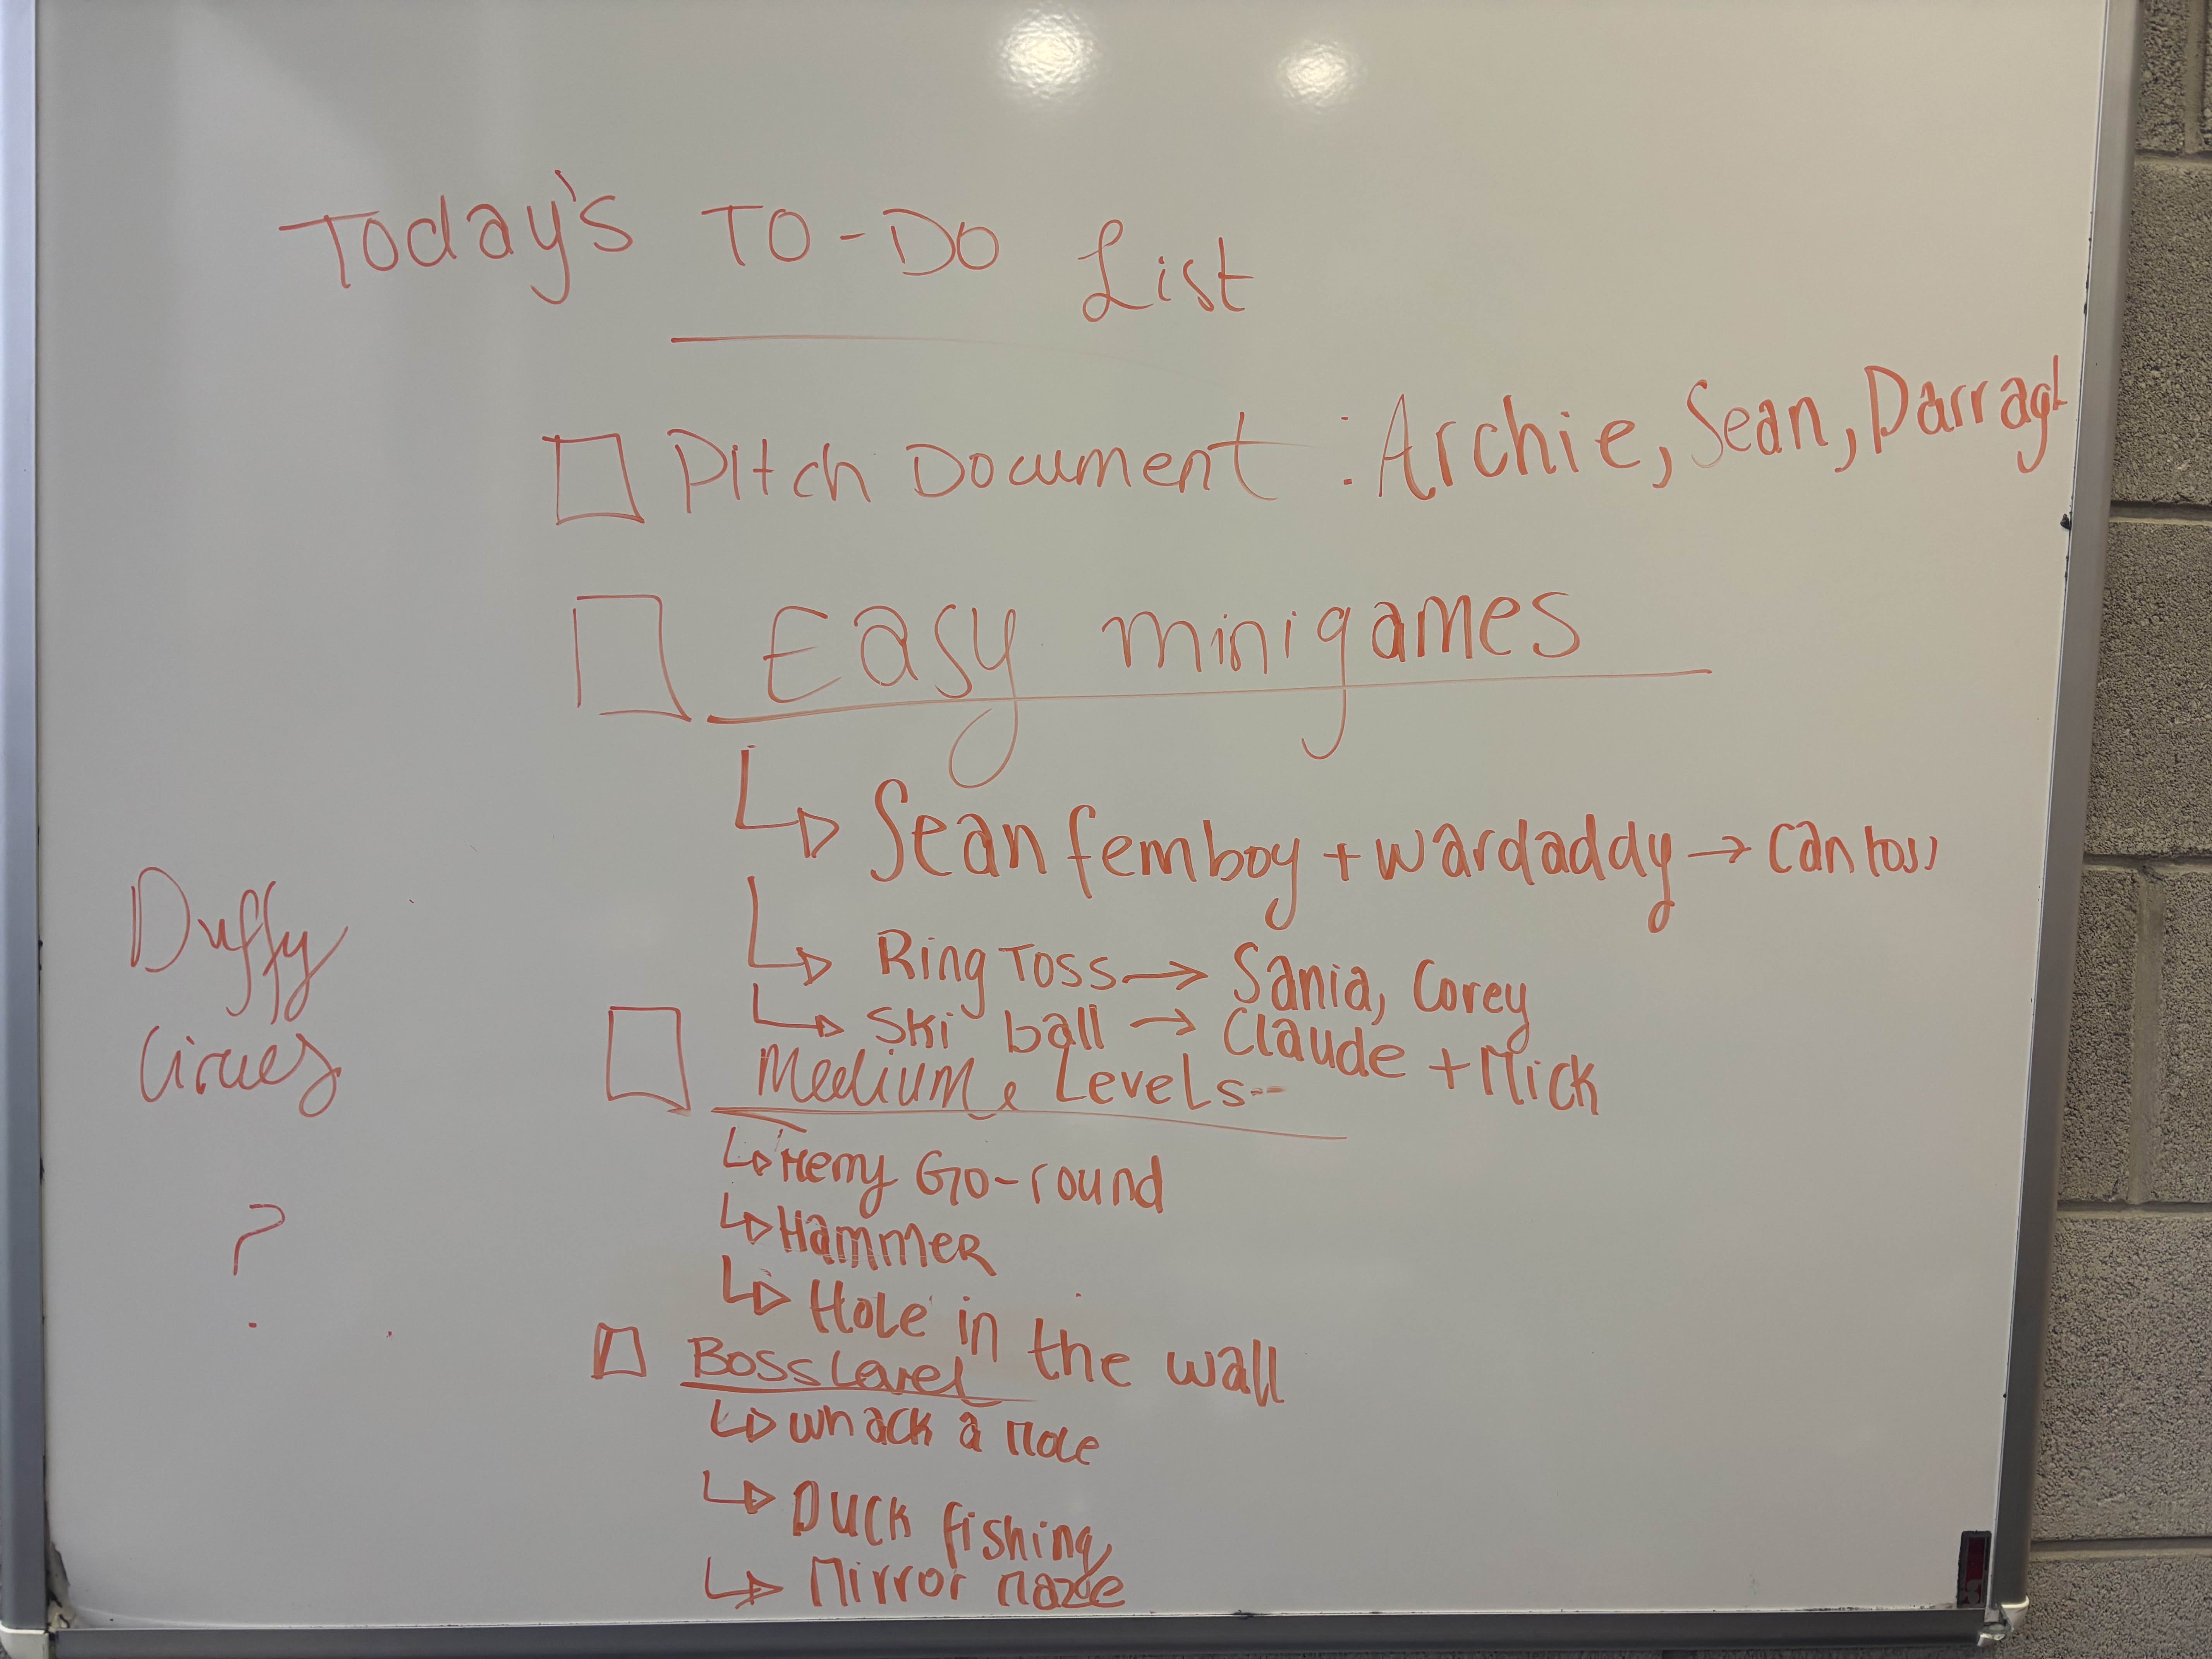 Today's TO-DO List
Pitch Document : Archie, Sean, Darragh
Easy minigames
Sean femboy + wardaddy → can toss
Ring Toss → Sania, Corey
Ski ball → Claude + Mick
Medium Levels--
Merry Go-round
Hammer
Hole in the wall
Boss Level
Whack a Mole
Duck fishing
Mirror Maze
Duffy
?